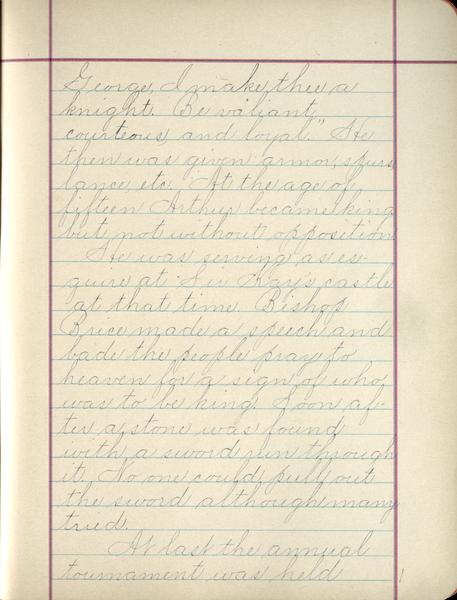 George, I make thee a
knight. Be valiant,
courteous, and loyal." He
then was given armor, spurs,
lance, etc. At the age of
fifteen Arthur became king
but not without opposition
He was serving as es-
quire at Sir Kay's castle
at that time. Bishop
Brice made a speech and
bade the people pray to
heaven for a sign of who
was to be king. Soon af-
ter a stone was found
with a sword run through
it. No one could pull out
the sword although many
tried.
At last the annual
tournament was held